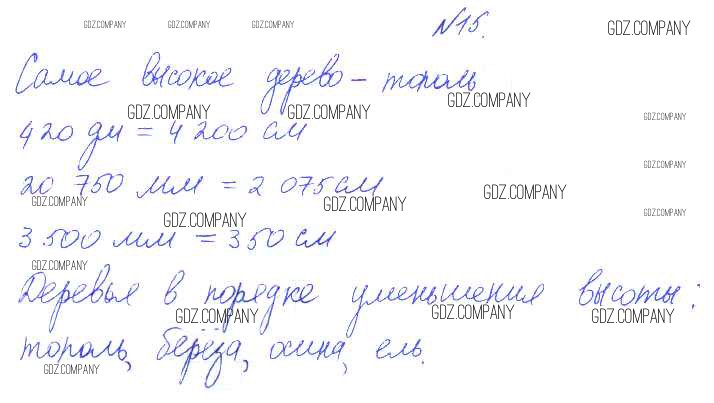 GDZ.COMPANY GDZ.COMPANY GDZ.COMPANY N15. GDZ.COMPANY
Самое высокое дерево – тополь
GDZ.COMPANY GDZ.COMPANY GDZ.COMPANY
GDZ.COMPANY
420 дм = 4 200 см
GDZ.COMPANY
20 750 мм = 2 075 см
GDZ.COMPANY GDZ.COMPANY GDZ.COMPANY
GDZ.COMPANY GDZ.COMPANY
3 500 мм = 350 см
GDZ.COMPANY
Деревья в порядке уменьшения высоты:
GDZ.COMPANY GDZ.COMPANY GDZ.COMPANY
тополь, берёза, осина, ель.
GDZ.COMPANY